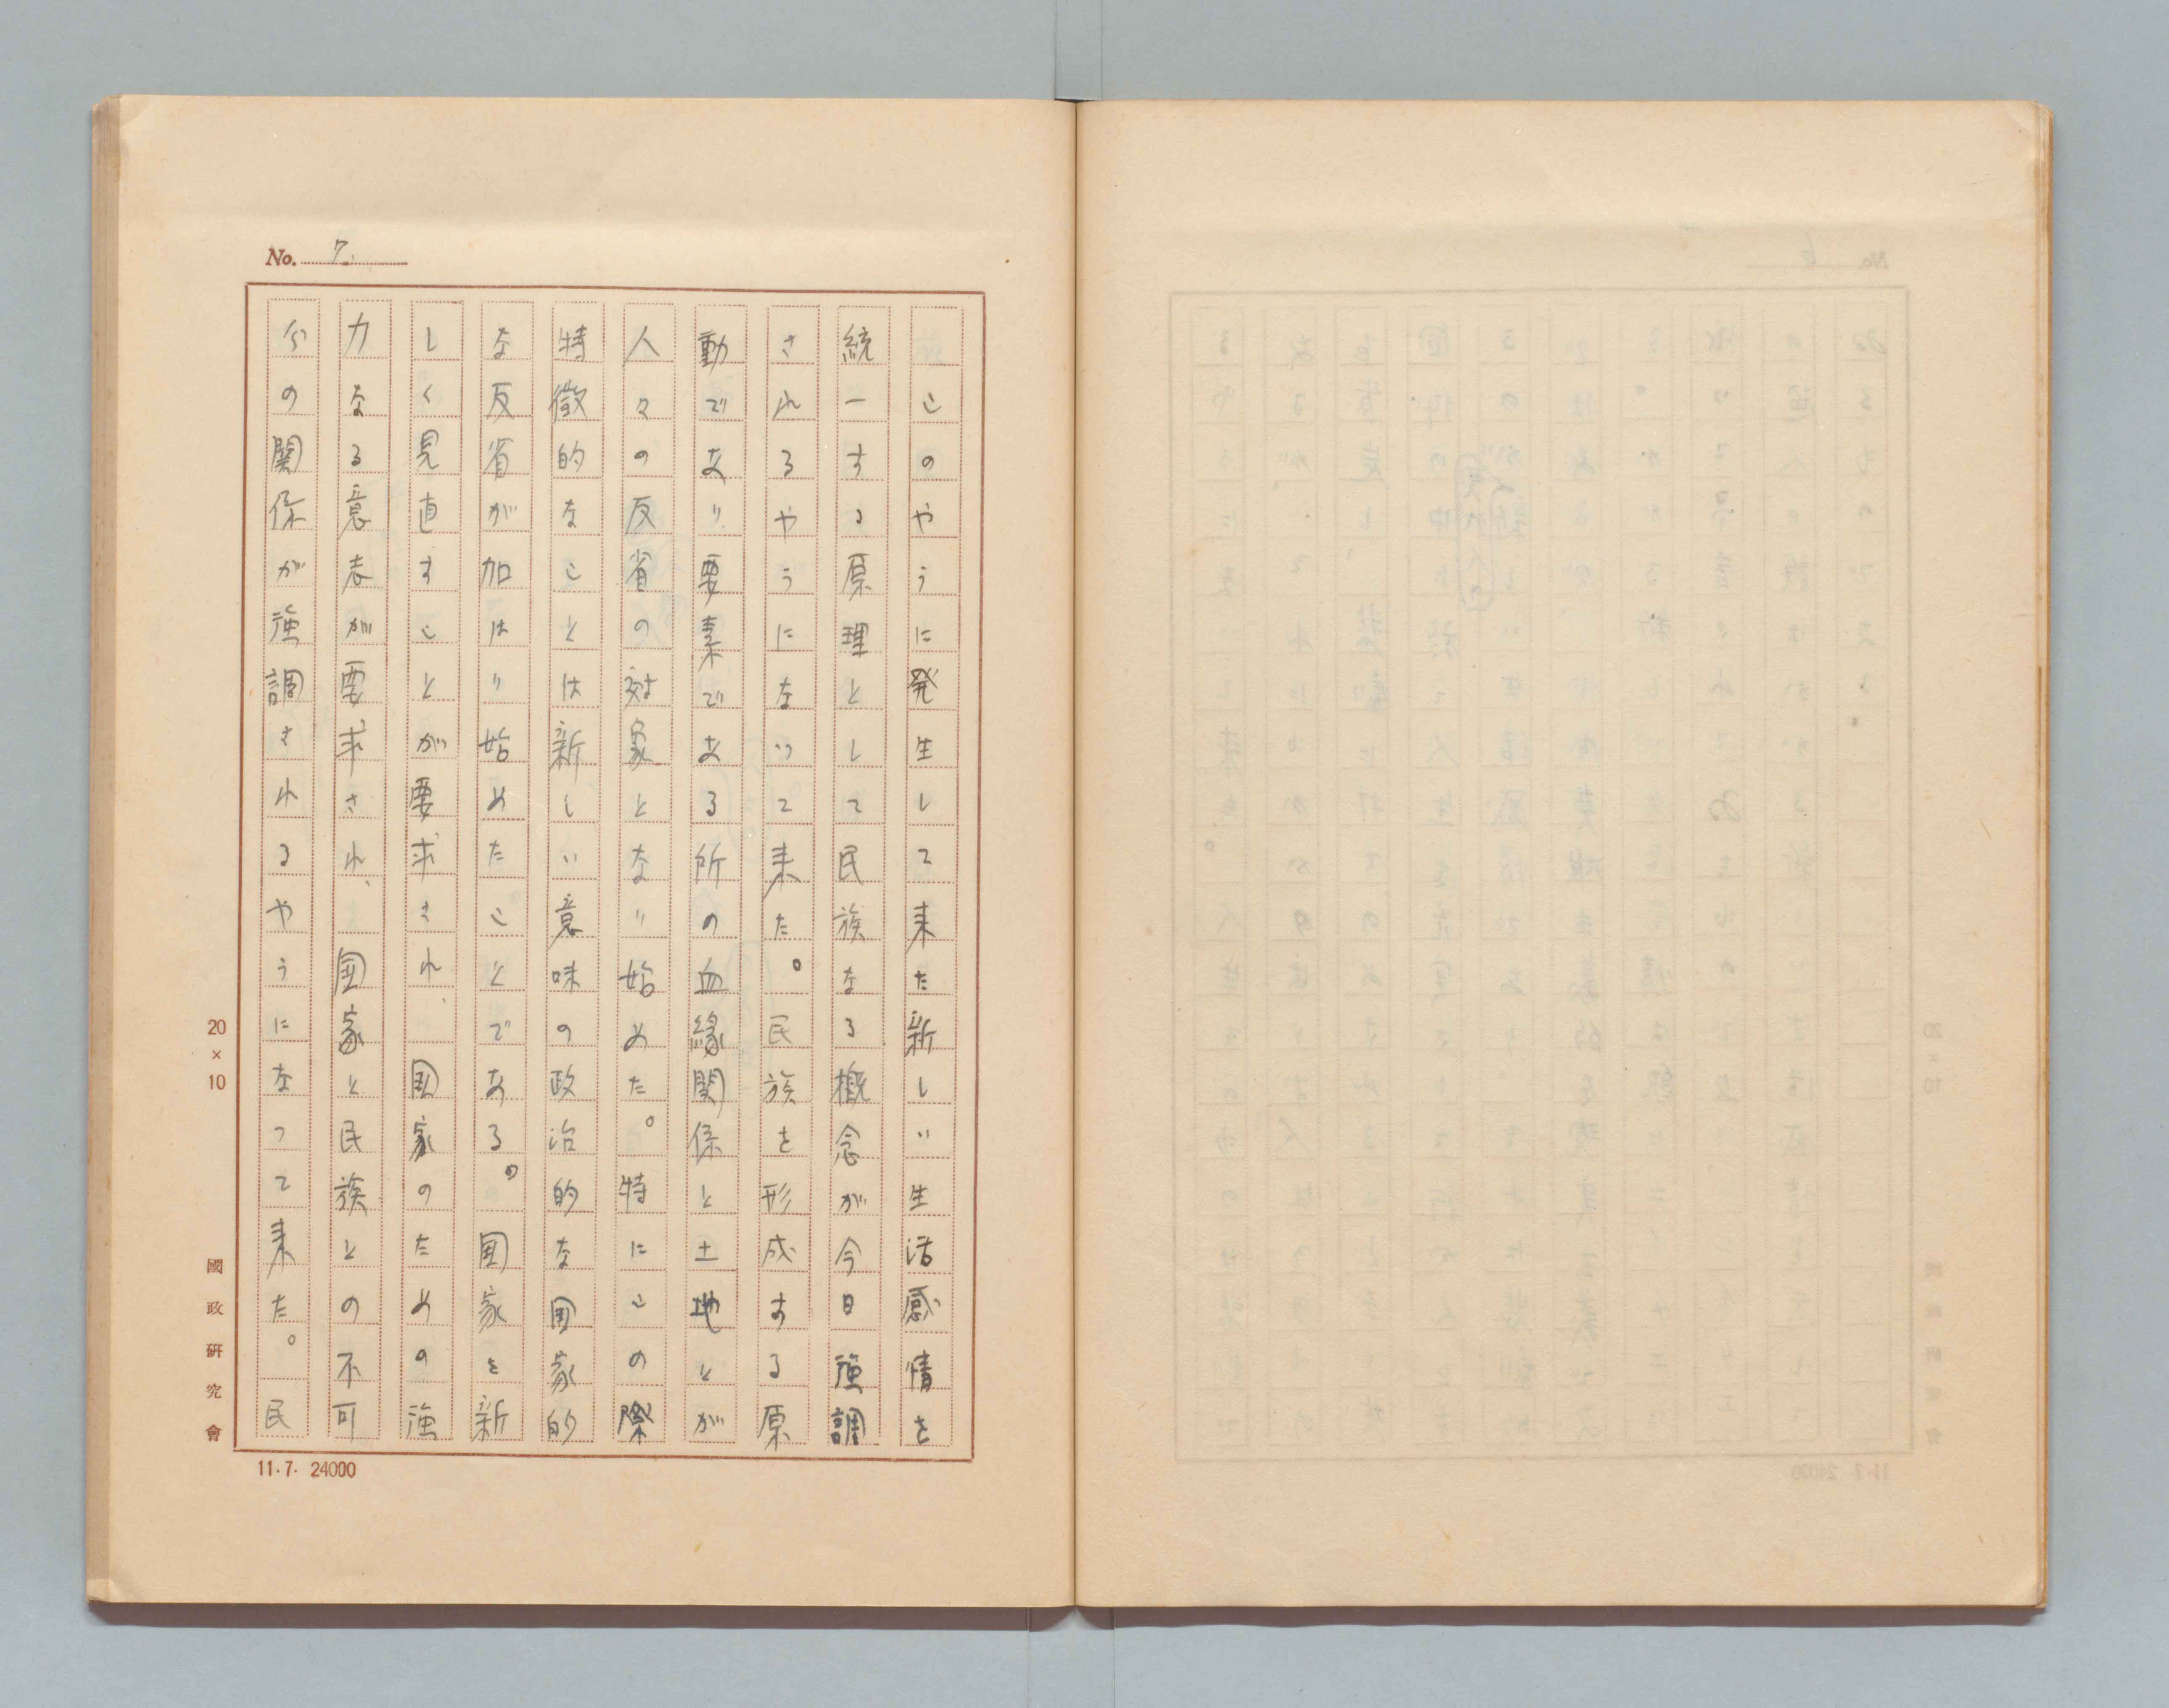 No. 7.
このやうに発生して来た新しい生活感情を
統一する原理として民族なる概念が今日強調
されるやうになって来た。民族を形成する原
動であり要素である所の血縁関係と土地とが
人々の反省の対象となり始めた。特にこの際
特徴的なことは新しい意味の政治的な国家的
な反省が加はり始めたことである。国家を新
しく見直すことが要求され、国家のための強
力なる意志が要求され、国家と民族との不可
分の関係が強調されるやうになって来た。民
20×10
國政研究會
11.7. 24000